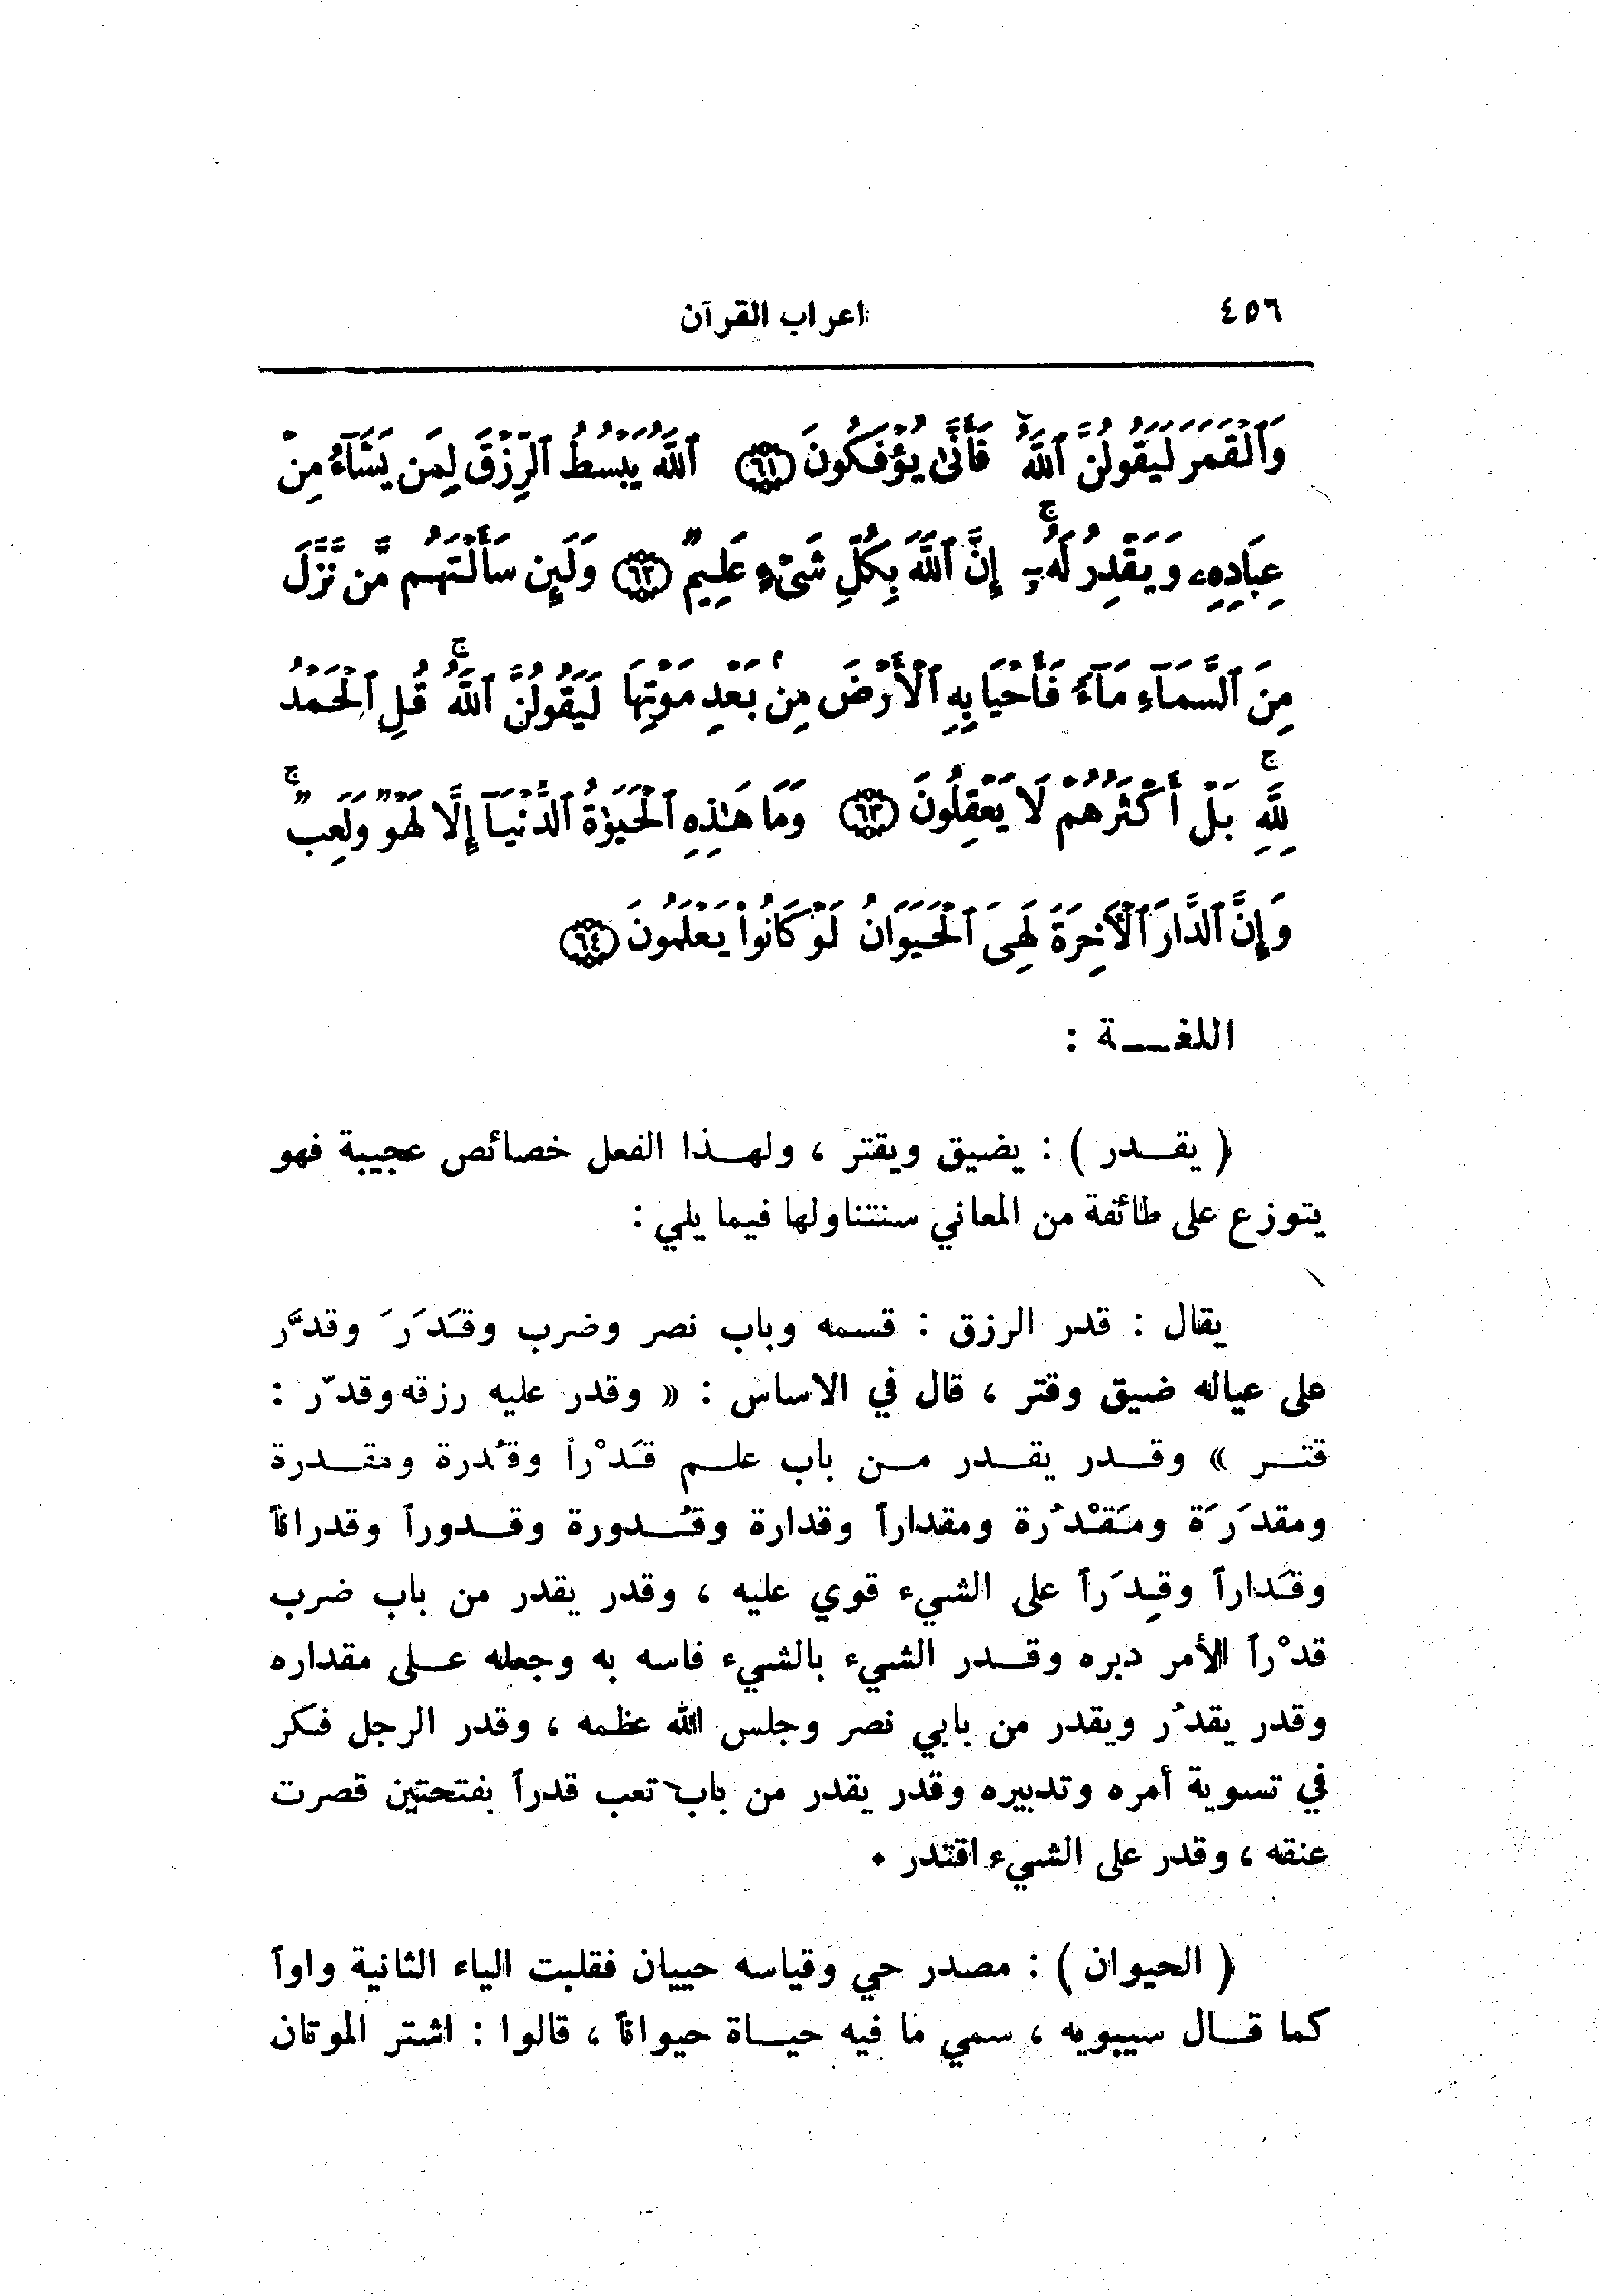 ٤٥٦ اعراب القرآن
وَٱلْقَمَرَ لَيَقُولُنَّ ٱللَّهُ فَأَنَّىٰ يُؤْفَكُونَ ٦١ ٱللَّهُ يَبْسُطُ ٱلرِّزْقَ لِمَن يَشَآءُ مِنْ
عِبَادِهِۦ وَيَقْدِرُ لَهُۥٓ ۚ إِنَّ ٱللَّهَ بِكُلِّ شَىْءٍ عَلِيمٌ ٦٢ وَلَئِن سَأَلْتَهُم مَّن نَّزَّلَ
مِنَ ٱلسَّمَآءِ مَآءً فَأَحْيَا بِهِ ٱلْأَرْضَ مِنۢ بَعْدِ مَوْتِهَا لَيَقُولُنَّ ٱللَّهُ ۚ قُلِ ٱلْحَمْدُ
لِلَّهِ ۚ بَلْ أَكْثَرُهُمْ لَا يَعْقِلُونَ ٦٣ وَمَا هَٰذِهِ ٱلْحَيَوٰةُ ٱلدُّنْيَآ إِلَّا لَهْوٌ وَلَعِبٌ ۚ
وَإِنَّ ٱلدَّارَ ٱلْأَخِرَةَ لَهِىَ ٱلْحَيَوَانُ لَوْ كَانُوا۟ يَعْلَمُونَ ٦٤
اللغـــة :
( يقـــدر ) : يضيق ويقتر ، ولهـــذا الفعل خصائص عجيبة فهو
يتوزع على طائفة من المعاني سنتناولها فيما يلي :
يقال : قدر الرزق : قسمه وباب نصر وضرب وقَدَرَ وقدَّر
على عياله ضيق وقتر ، قال في الاساس : « وقدر عليه رزقه وقدّر :
قتـــر » وقـــدر يقـــدر مـــن باب علـــم قَدْراً وقُدرة ومقـــدرة
ومقدَرَة ومَقْدُرة ومقداراً وقدارة وقُـــدورة وقـــدوراً وقدراناً
وقَداراً وقِدَراً على الشيء قوي عليه ، وقدر يقدر من باب ضرب
قدْراً الأمر دبره وقـــدر الشيء بالشيء قاسه به وجعله عـــلى مقداره
وقدر يقدُر ويقدر من بابي نصر وجلس الله عظمه ، وقدر الرجل فكر
في تسوية أمره وتدبيره وقدر يقدر من باب تعب قدراً بفتحتين قصرت
عنقه ، وقدر على الشيء اقتدر .
( الحيوان ) : مصدر حي وقياسه حييان فقلبت الياء الثانية واواً
كما قـــال سيبويه ، سمي ما فيه حيـــاة حيواناً ، قالوا : اشتر الموتان